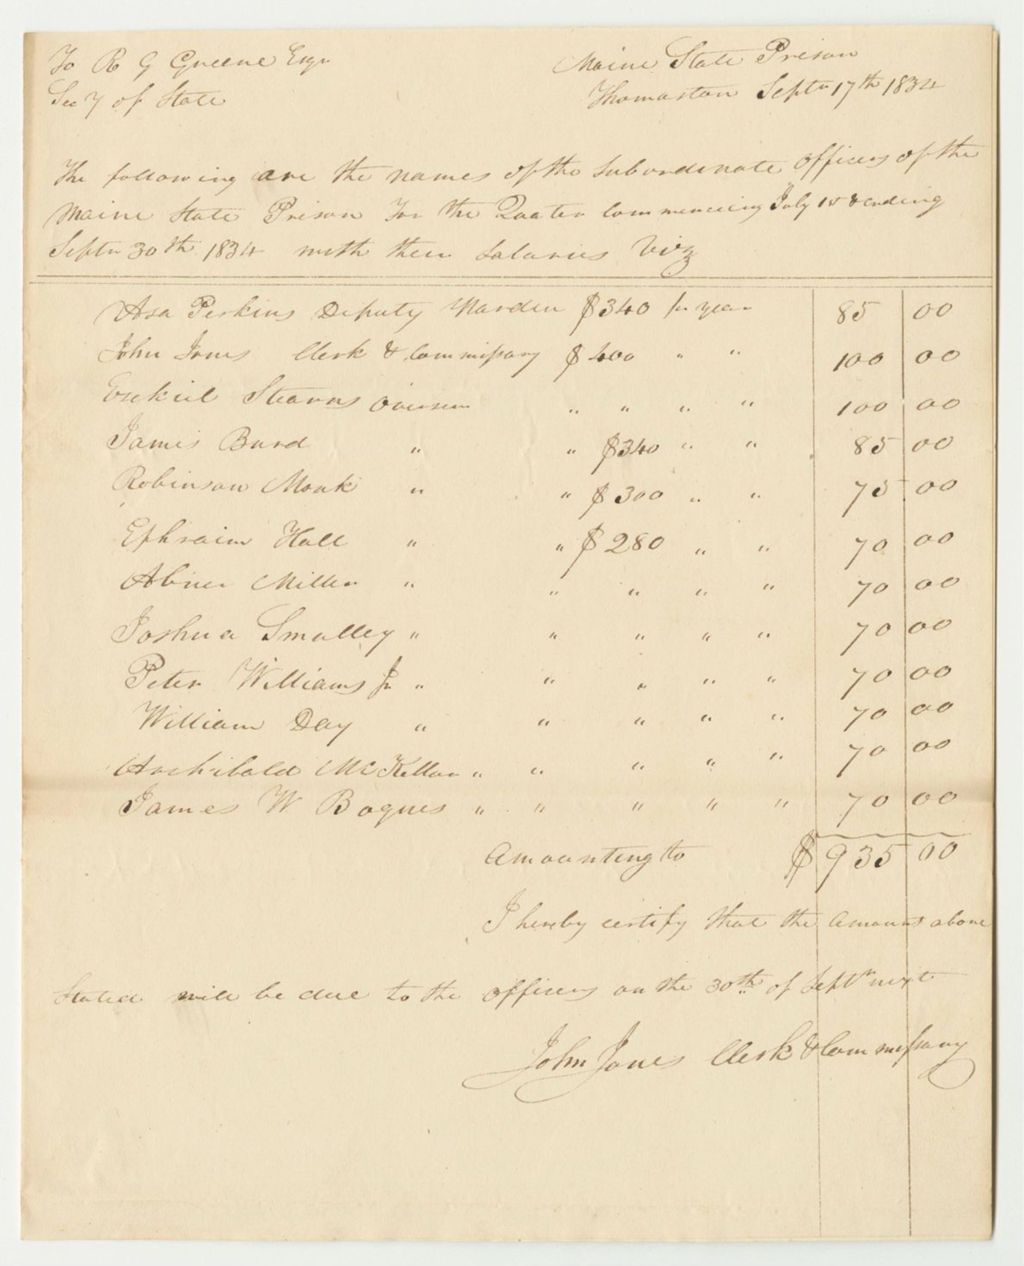 To R G Greene Esqr
Maine State Prison
Secy of State
Thomaston Septr 17th 1834
The following are the names of the Subordinate officers of the
Maine State Prison For the Quater Commencing July 1st & ending
Septr 30th 1834 with their Salaries Viz
Asa Perkins Deputy Warden $340 pr year 85 00
John Jones Clerk & Commissary $400 " " 100 00
Ezekiel Stearns Overseer " " " " 100 00
James Burd " " $340 " " 85 00
Robinson Monk " " $300 " " 75 00
Ephraim Hall " " $280 " " 70 00
Abner Miller " " " " " 70 00
Joshua Smalley " " " " " 70 00
Peter Williams Jr " " " " " 70 00
William Day " " " " " 70 00
Archibald McKellar " " " " " 70 00
James W Bogues " " " " " 70 00
Amounting to $935 00
I hereby certify that the amount above
Stated will be due to the officers on the 30th of Septr next
John Jones Clerk & Commissary